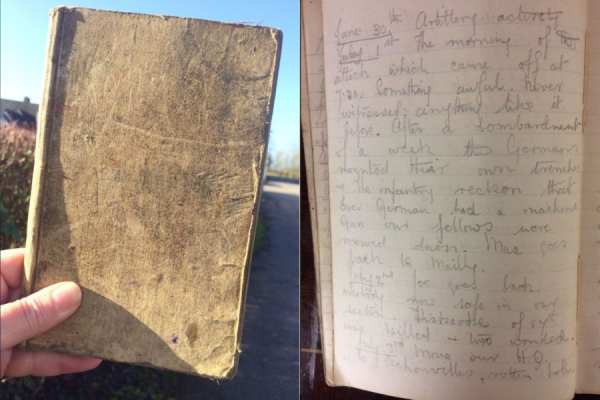 June 30th Artillery activity
July 1st The morning of
attack which came off at
7.30. Something awful. Never
witnessed anything like it
before. After a bombardment
of a week the Germans
mounted their own trenches
& the infantry reckon that
every German had a machine
Gun our fellows were
mowed down. Mac goes
back to Mailly.
July 2nd Joe goes back.
everybody was safe in our
section of
killed & two wounded.
July 3rd Move our H.Q.
to Auchonvillers, rotten